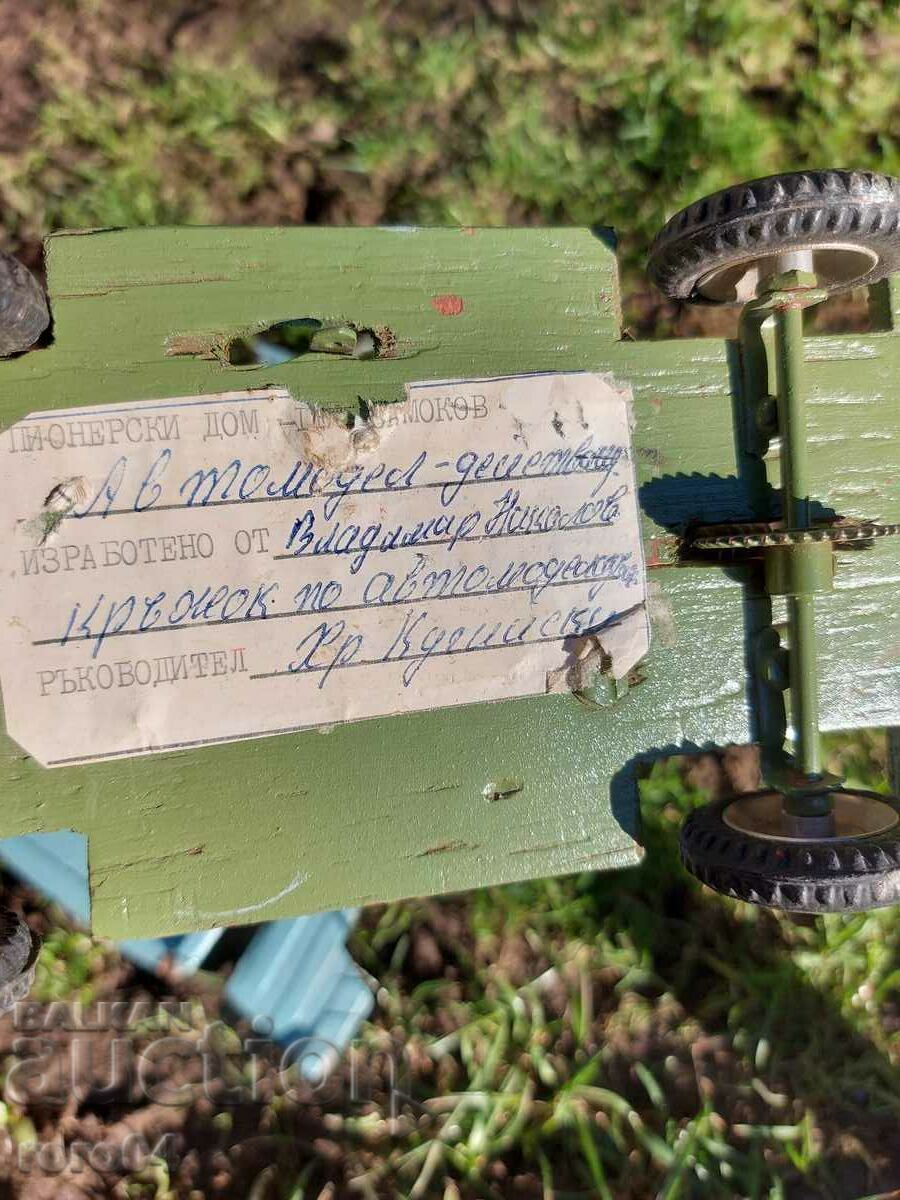 ПИОНЕРСКИ ДОМ САМОКОВ
Автомодел-действащ
ИЗРАБОТЕНО ОТ Владимир Николов
Кръжок по автомоделизъм
РЪКОВОДИТЕЛ Хр
BALKAN
auction
roro04